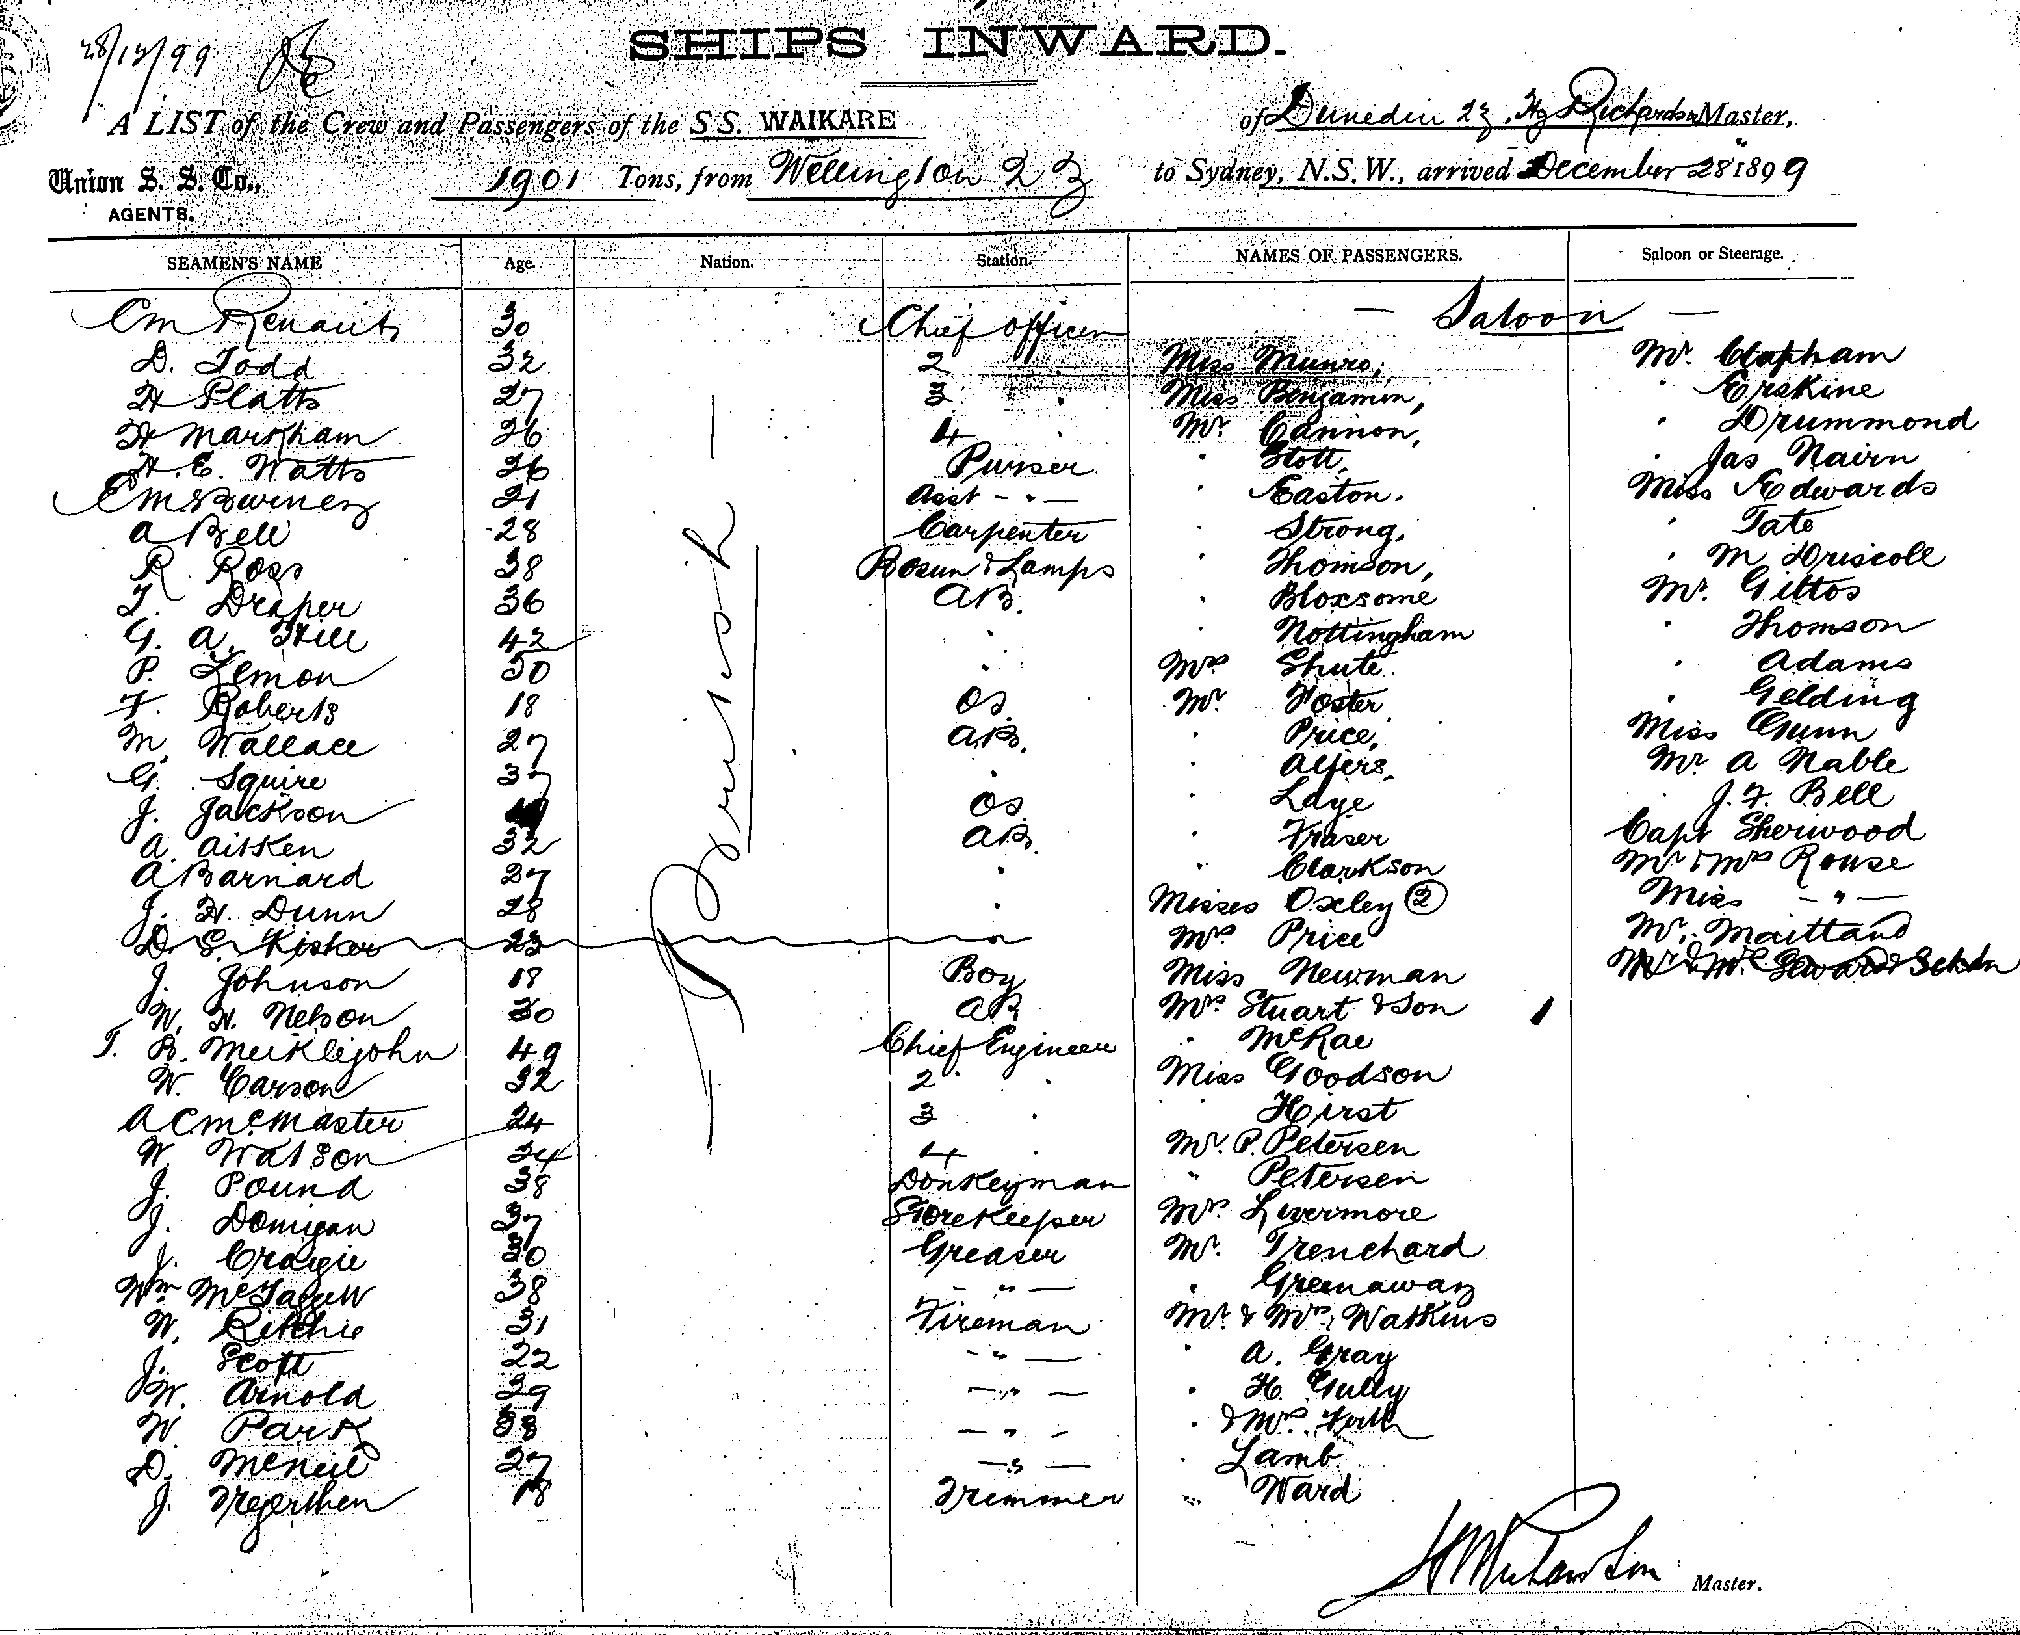 28/12/99
SHIPS INWARD.
A LIST of the Crew and Passengers of the S.S. WAIKARE of Dunedin NZ, Hy Richardson Master,
Union S. S. Co., 1901 Tons, from Wellington NZ to Sydney, N.S.W., arrived December 28" 1899
AGENTS.
SEAMEN'S NAME Age. Nation. Station. NAMES OF PASSENGERS. Saloon or Steerage.
30 Chief officer — Saloon —
D. Todd 32 2 " Miss Munro, Mr. Clapham
H Platts 27 3 " Miss Benjamin, " Erskine
H Markham 26 4 " Mr Cannon, " Drummond
H. E. Watts 26 Purser " Stott, " Jas Nairn
21 Asst — " — " Easton. Miss Edwards
A Bell 28 Carpenter " Strong, " Tate
R. Ross 38 Bosun & Lamps " Thomson, " M Driscoll
T. Draper 36 AB. " Bloxsome Mr. Giltos
G. A. Hill 42 " " Nottingham " Thomson
P. Lemon 50 " Mrs Shute " Adams
F. Roberts 18 OS. Mr Foster " Gelding
M. Wallace 27 AB. " Price, Miss Gunn
G. Squire 37 " " Ayers, Mr A Nable
J. Jackson OS. " Laye " J. F. Bell
A. Aitken 32 AB. " Fraser Capt Sherwood
A Barnard 27 " " Clarkson Mr & Mrs Rouse
J. H. Dunn 28 " Misses Oxley (2) Miss — " —
D. S. Kisker 23 " Mrs Price Mr. Maitland
J. Johnson 18 Boy Miss Newman Mr & Mrs
W. H. Nelson 30 AB Mrs Stuart & Son
T. B. Meiklejohn 49 Chief Engineer " McRae
W. Carson 32 2 " Miss Goodson
A C McMaster 24 3 " " Hirst
W Watson 34 4 " Mr. P. Petersen
J. Pound 38 Donkeyman " Petersen
J. Donigan 37 Storekeeper Mrs Livermore
J. Craigie 30 Greaser Mr. Trenchard
Wm 38 — " — " Greenaway
W. Ritchie 31 Fireman Mr. & Mrs. Watkins
J. Scott 22 — " — " A. Gray
W. Arnold 29 — " — " H. Gully
W. Park 38 — " — " & Mrs.
D. McNeil 27 — " — " Lamb
J. Tregerthen 18 Trimmer " Ward
— British —
H M Richardson Master.